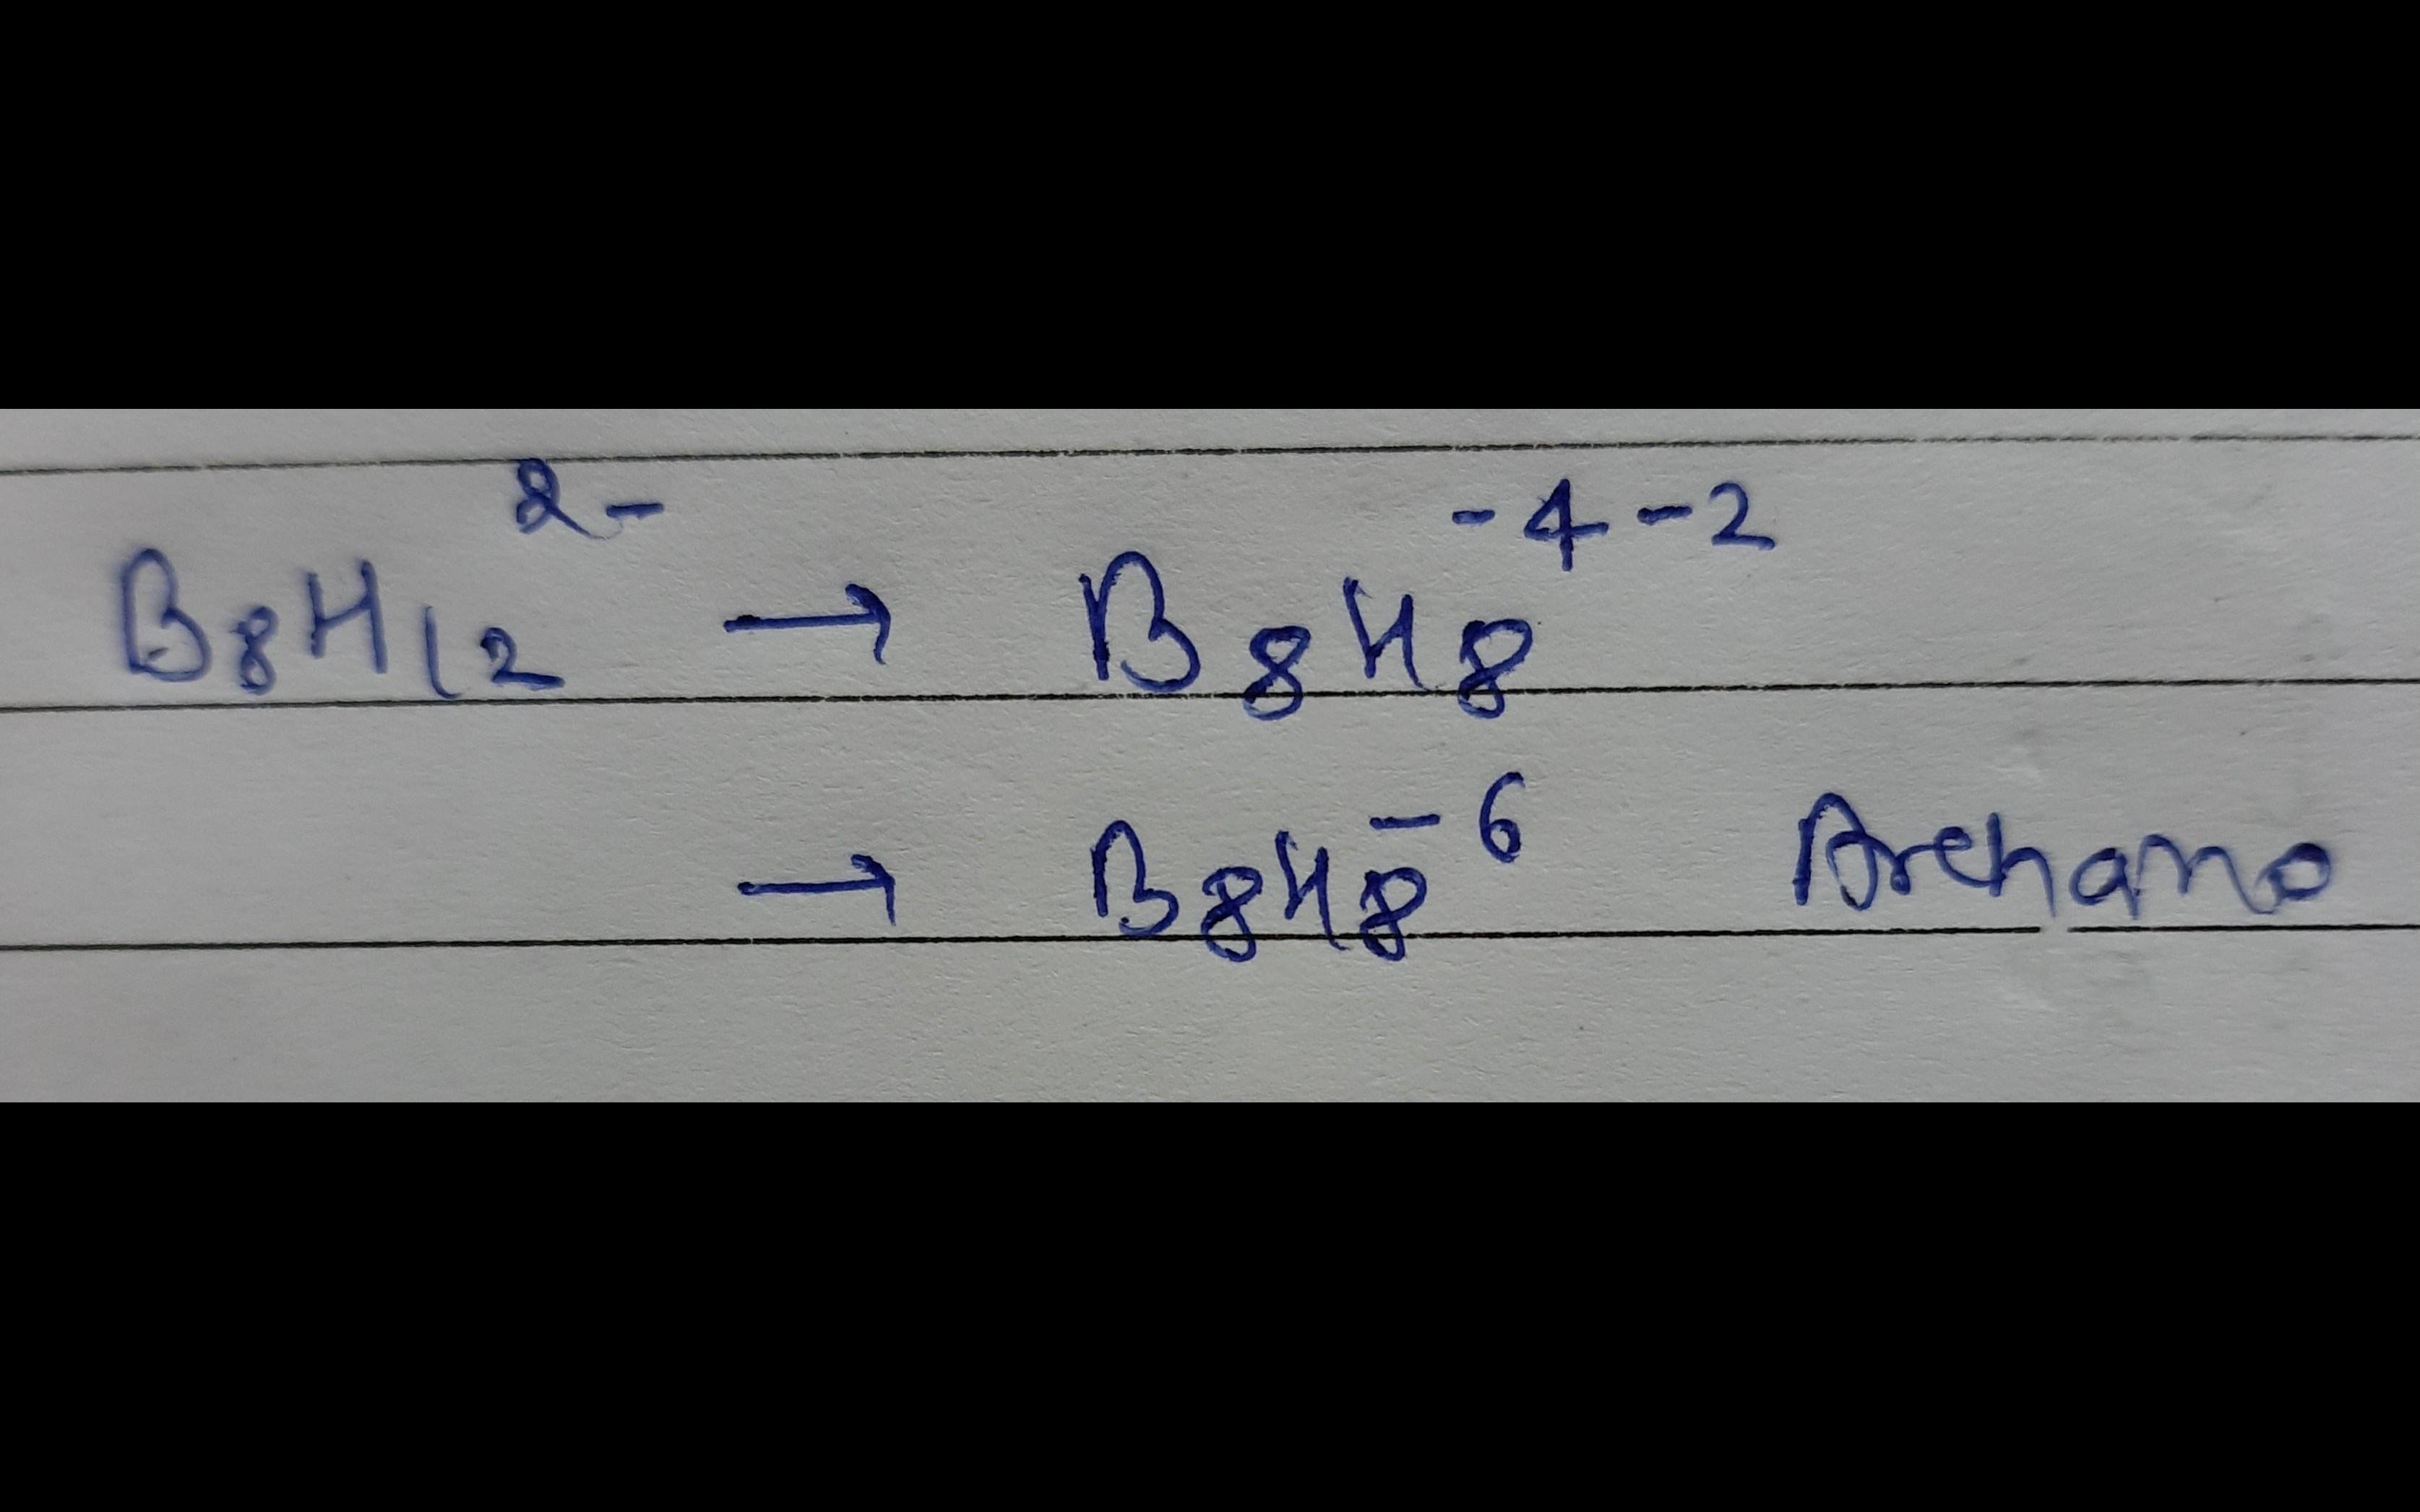 B₈H₁₂²⁻ → B₈H₈⁻⁴⁻²
→ B₈H₈⁻⁶ Arehano